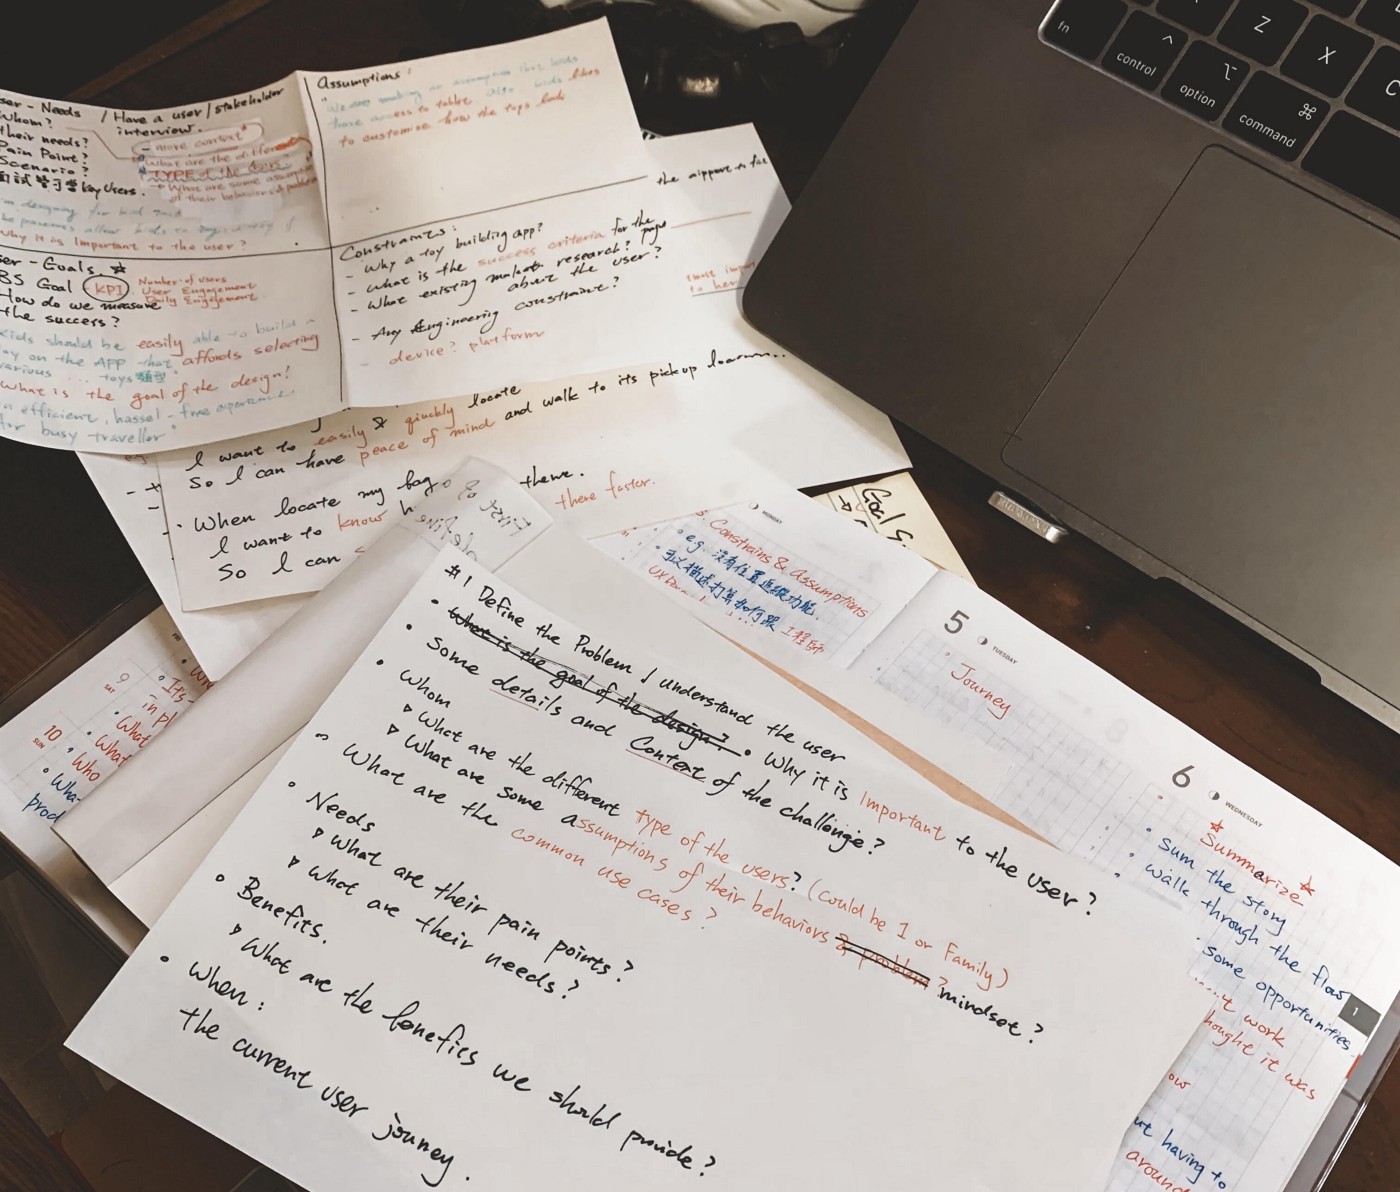 ser - Needs / Have a user / stakeholder
Whom? interview.
their needs?
Pain Point?
Scenario?
key users.
- more context*
What are the different
TYPE of the users.
What are some assumptions
of their behaviors & problem
m designing for kid and
Why it is Important to the user?
Assumptions:
We are making an assumption that kids
have access to tablet. Also kids likes
to customize how the toys look
ser - Goals. ★
BS Goal KPI
Number of users
User Engagement
Daily Engagement
How do we measure
the success?
kids should be easily able to build a
toy on the APP that affords selecting
various ... toys 類型"
What is the goal of the design!
an efficient, hassel-free experience
for busy traveller"
Constraints:
- Why a toy building app?
- What is the success criteria for the page
- What existing market research?
about the user?
- Any Engineering constraint?
- device? platform
the airport to
most impor
to her
locate
I want to easily & quickly
So I can have peace of mind and walk to its pick up
• When locate my bag there.
I want to know there faster.
So I can
First
define
Goal
MONDAY
Constrains & Assumptions
• e.g. 沒有位置追蹤功能.
可以描述打算如何跟 工程師
5 TUESDAY
Journey
6 WEDNESDAY
★ Summarize ★
• Sum the story
• walk through the flow
• some opportunities
work
thought it was
ow
ut having to
around
9
SAT
10
SUN
• It's
in pl
• What
• What
• Who
• Wha
prod
#1 Define the Problem / Understand the user
• What is the goal of the design? • Why it is Important to the user?
• Some details and Context of the challenge?
• Whom
▷ What are the different type of the users? (could be 1 or Family)
▷ What are some assumptions of their behaviors & problem? mindset?
• What are the common use cases?
• Needs
▷ What are their pain points?
▷ What are their needs?
• Benefits.
▷ What are the benefits we should provide?
• When:
the current user journey.
fn
control
option
command
⌘
Z
X
C
1